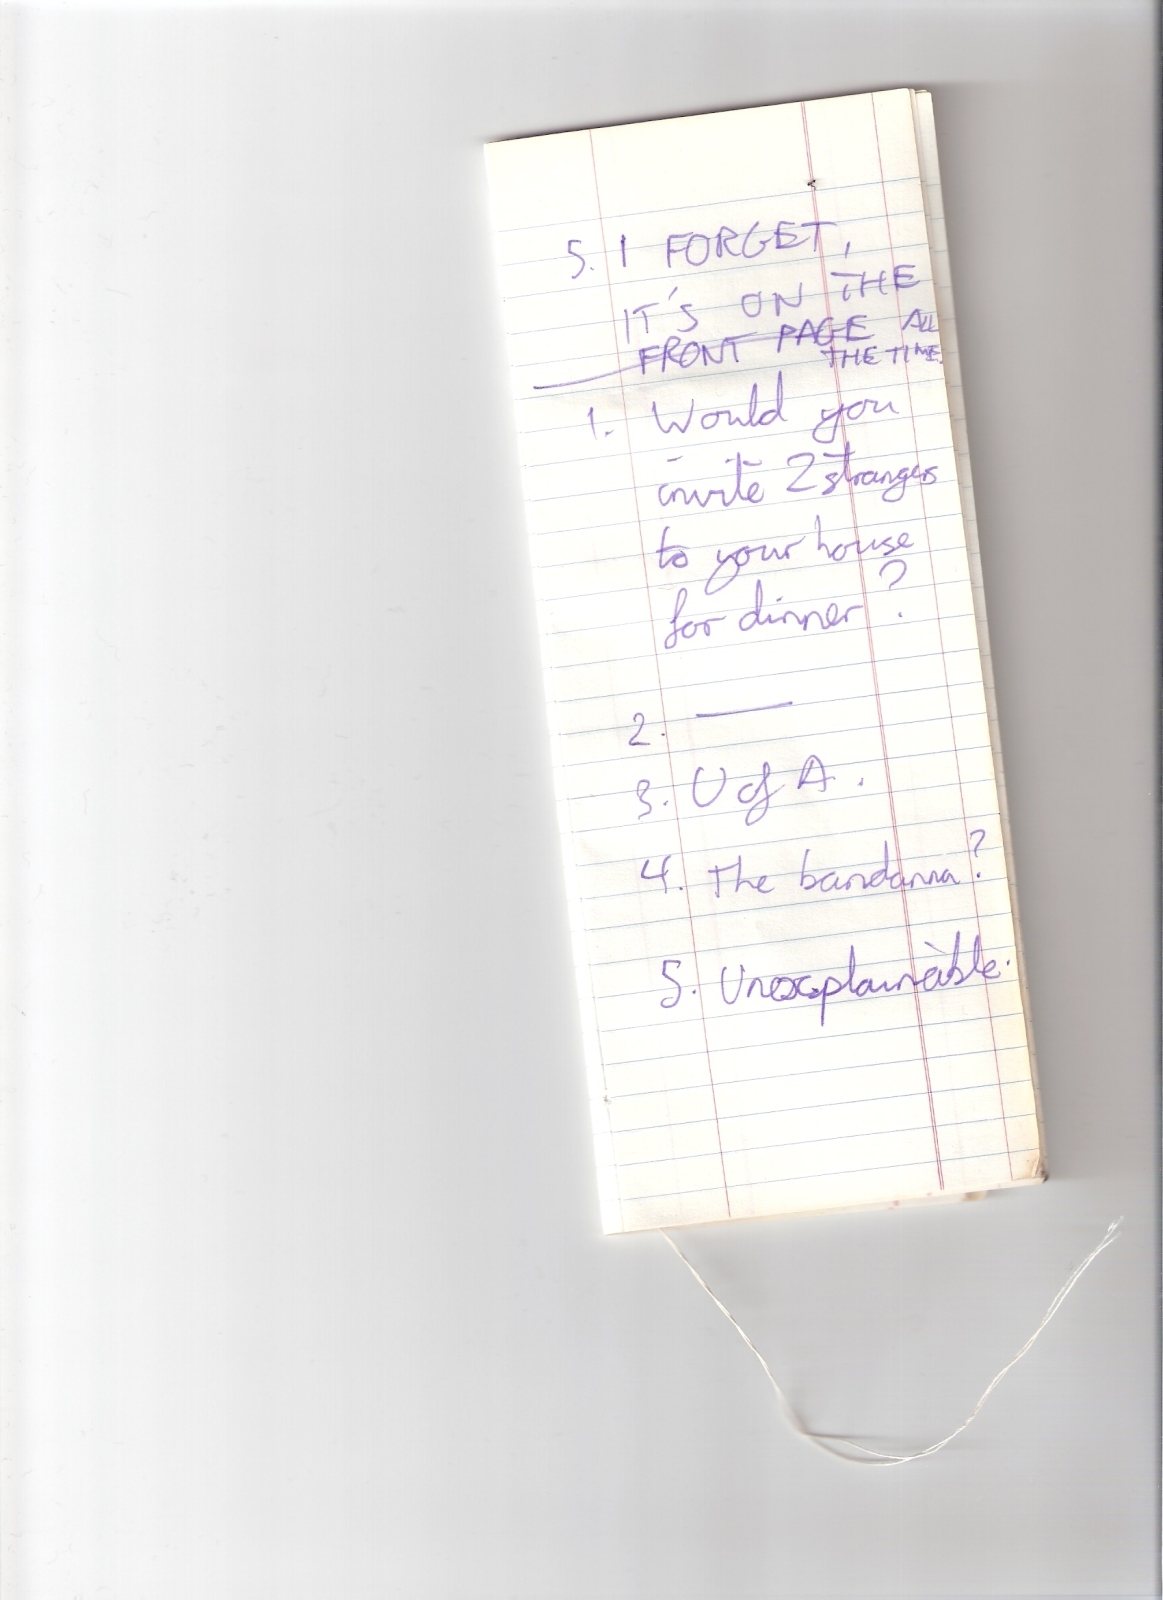 5. I FORGET,
IT'S ON THE
FRONT PAGE ALL
THE TIME.
1. Would you
invite 2 strangers
to your house
for dinner?
2. —
3. U of A.
4. The bandanna?
5. Unexplainable.